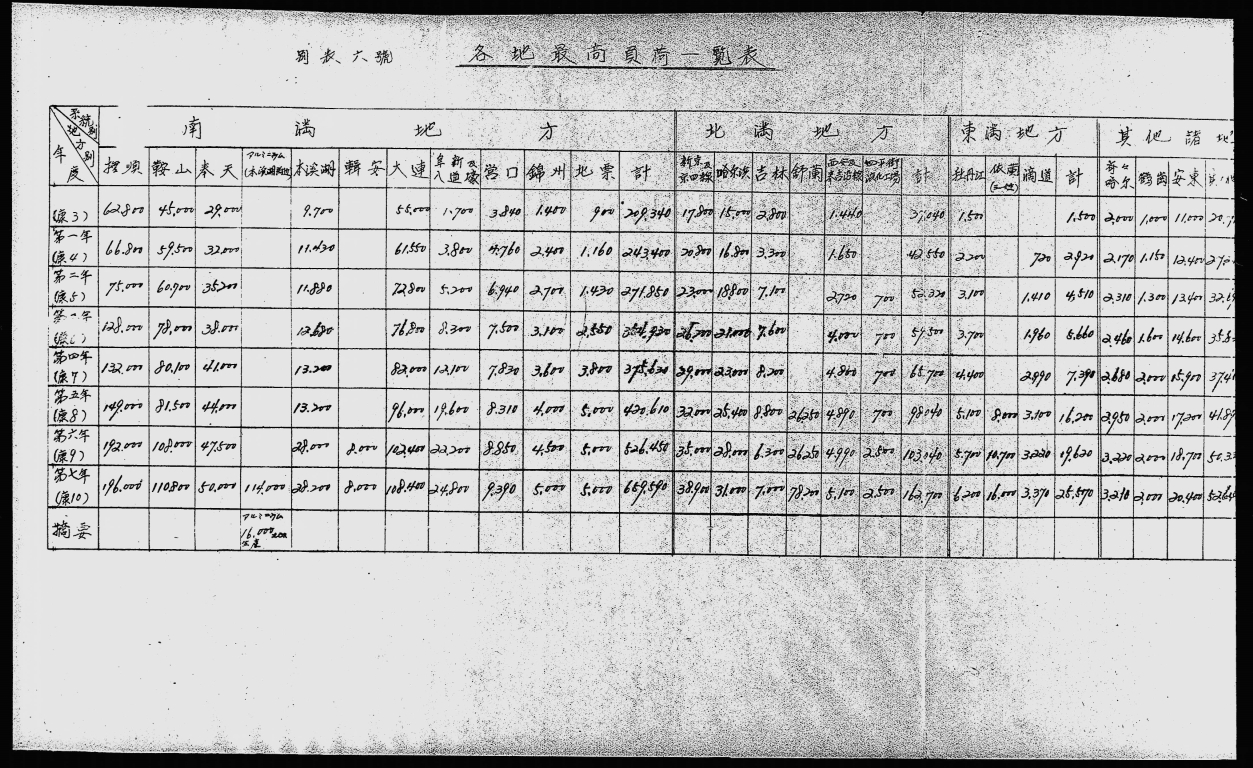 別表六號 各地最高負荷一覧表
系統別 地方別 年度 南滿地方 北滿地方 東滿地方 其他諸地
撫順 鞍山 奉天 アルミニウム 本溪湖 輯安 大連 阜新及八道壕 營口 錦州 北票 計 新京及 哈尓浜 吉林 舒蘭 西安及 四平街 計 牡丹江 依蘭 計 鶴崗 安東
(康3) 62.800 45.000 29.000 9.700 55.000 1.700 3.840 1.400 900 209.340 17.800 15.000 2.800 1.440 37.040 1.500 1.500 2,000 1,000 11,000
第一年 (康4) 66.800 59.500 32.000 11.430 61.550 3.800 4.760 2.400 1.160 243.400 20.800 16.800 3.300 1.650 42.550 2.200 720 2.920 2.170 1.150 12.400
第二年 (康5) 75.000 60.900 35.200 11.880 72.800 5.200 6.940 2.700 1.430 271.850 23.000 18.800 7.100 2.720 700 52.320 3.100 1.410 4.510 2.310 1.300 13.400
(康6) 128.000 78.000 38.000 12.680 76.800 8.300 7.500 3.100 2.550 21.000 7.600 4.000 700 57.500 3.700 1.960 5.660 2.460 1.600 14.600
第四年 (康7) 132.000 80.100 41.000 13.200 82.000 12.100 7.830 3.600 3.800 375.630 29.000 23.000 8.200 4.800 700 65.700 4.400 2.990 7.390 2.000 15.900
第五年 (康8) 149.000 81.500 44.000 13.200 96.000 19.600 8.310 4.000 5.000 420.610 32.000 25.400 8.800 26.250 4.890 700 98.040 5.100 8.000 3.100 16.200 2.950 2.000 17.200
第六年 (康9) 192.000 108.000 47.500 28.000 8.000 102.400 22.200 8.850 4.500 5.000 526.450 35.000 28.000 6.300 26.250 4.990 2.500 103.040 5.700 10.700 3.220 19.620 3.220 2.000 18.700
第七年 (康10) 196.000 110.800 50.000 114.000 28.200 8.000 108.400 24.800 9.390 5.000 5.000 659.590 38.900 31.000 7.000 78.200 5.100 2.500 162.700 6.200 16.000 3.370 25.570 2.000 20.400
摘要 アルミニウム 16.000 生産